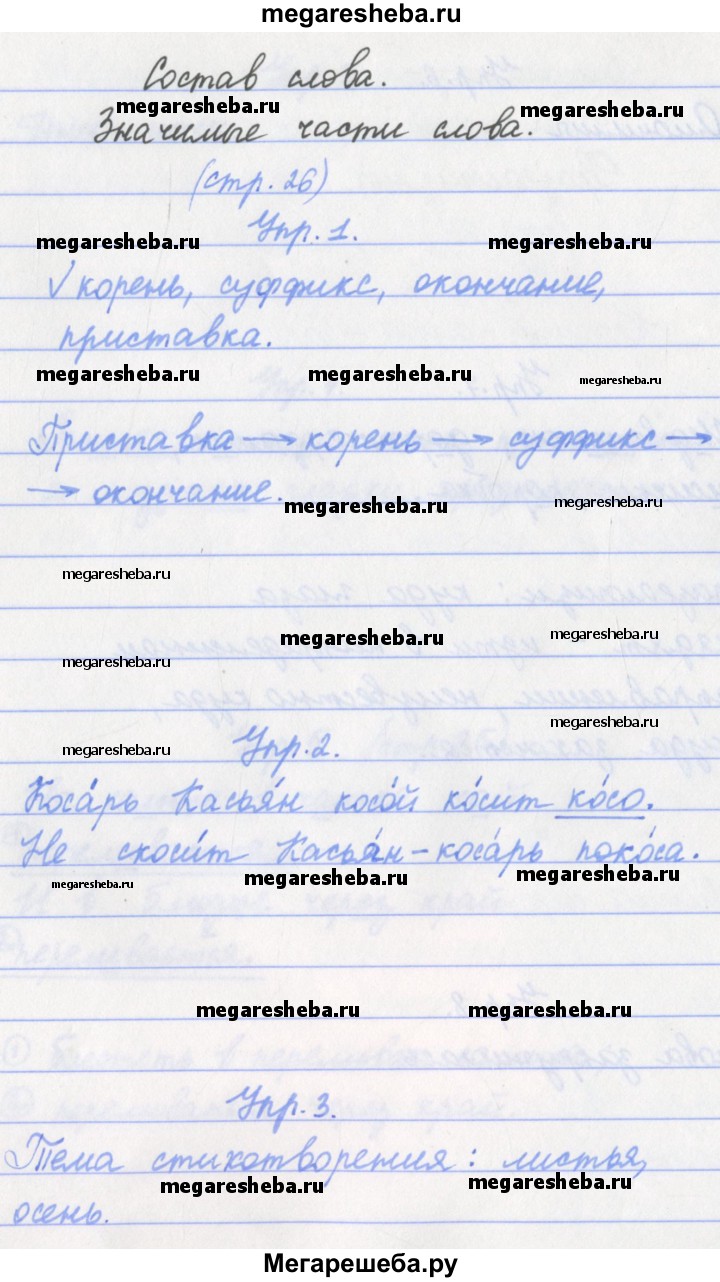 megaresheba.ru
Состав слова.
megaresheba.ru megaresheba.ru
Значимые части слова.
(стр. 26)
Упр. 1.
megaresheba.ru megaresheba.ru
√ корень, суффикс, окончание,
приставка.
megaresheba.ru megaresheba.ru megaresheba.ru
Приставка → корень → суффикс →
→ окончание.
megaresheba.ru megaresheba.ru
megaresheba.ru
megaresheba.ru megaresheba.ru
megaresheba.ru
megaresheba.ru
megaresheba.ru Упр. 2.
Коса́рь Касья́н косо́й ко́сит ко́со.
Не скоси́т Касья́н-коса́рь поко́са.
megaresheba.ru megaresheba.ru megaresheba.ru
megaresheba.ru megaresheba.ru
Упр. 3.
Тема стихотворения: листья,
megaresheba.ru megaresheba.ru
осень.
Мегарешеба.ру